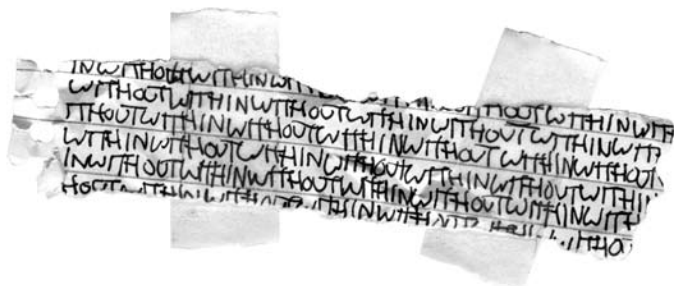 INWITHOUTWITHINWIT HOUTWITHINWITH
WITHOUTWITHINWITHOUTWITHINWITHOUTWITHINWITH
ITHOUTWITHINWITHOUTWITHINWITHOUTWITHINWITHOUT
WITHINWITHOUTWITHINWITHOUTWITHINWITHOUTWITHIN
INWITHOUTWITHINWITHOUTWITHINWITHOUTWITHINWITH
HOUTWITHIN THINWITH ITHO